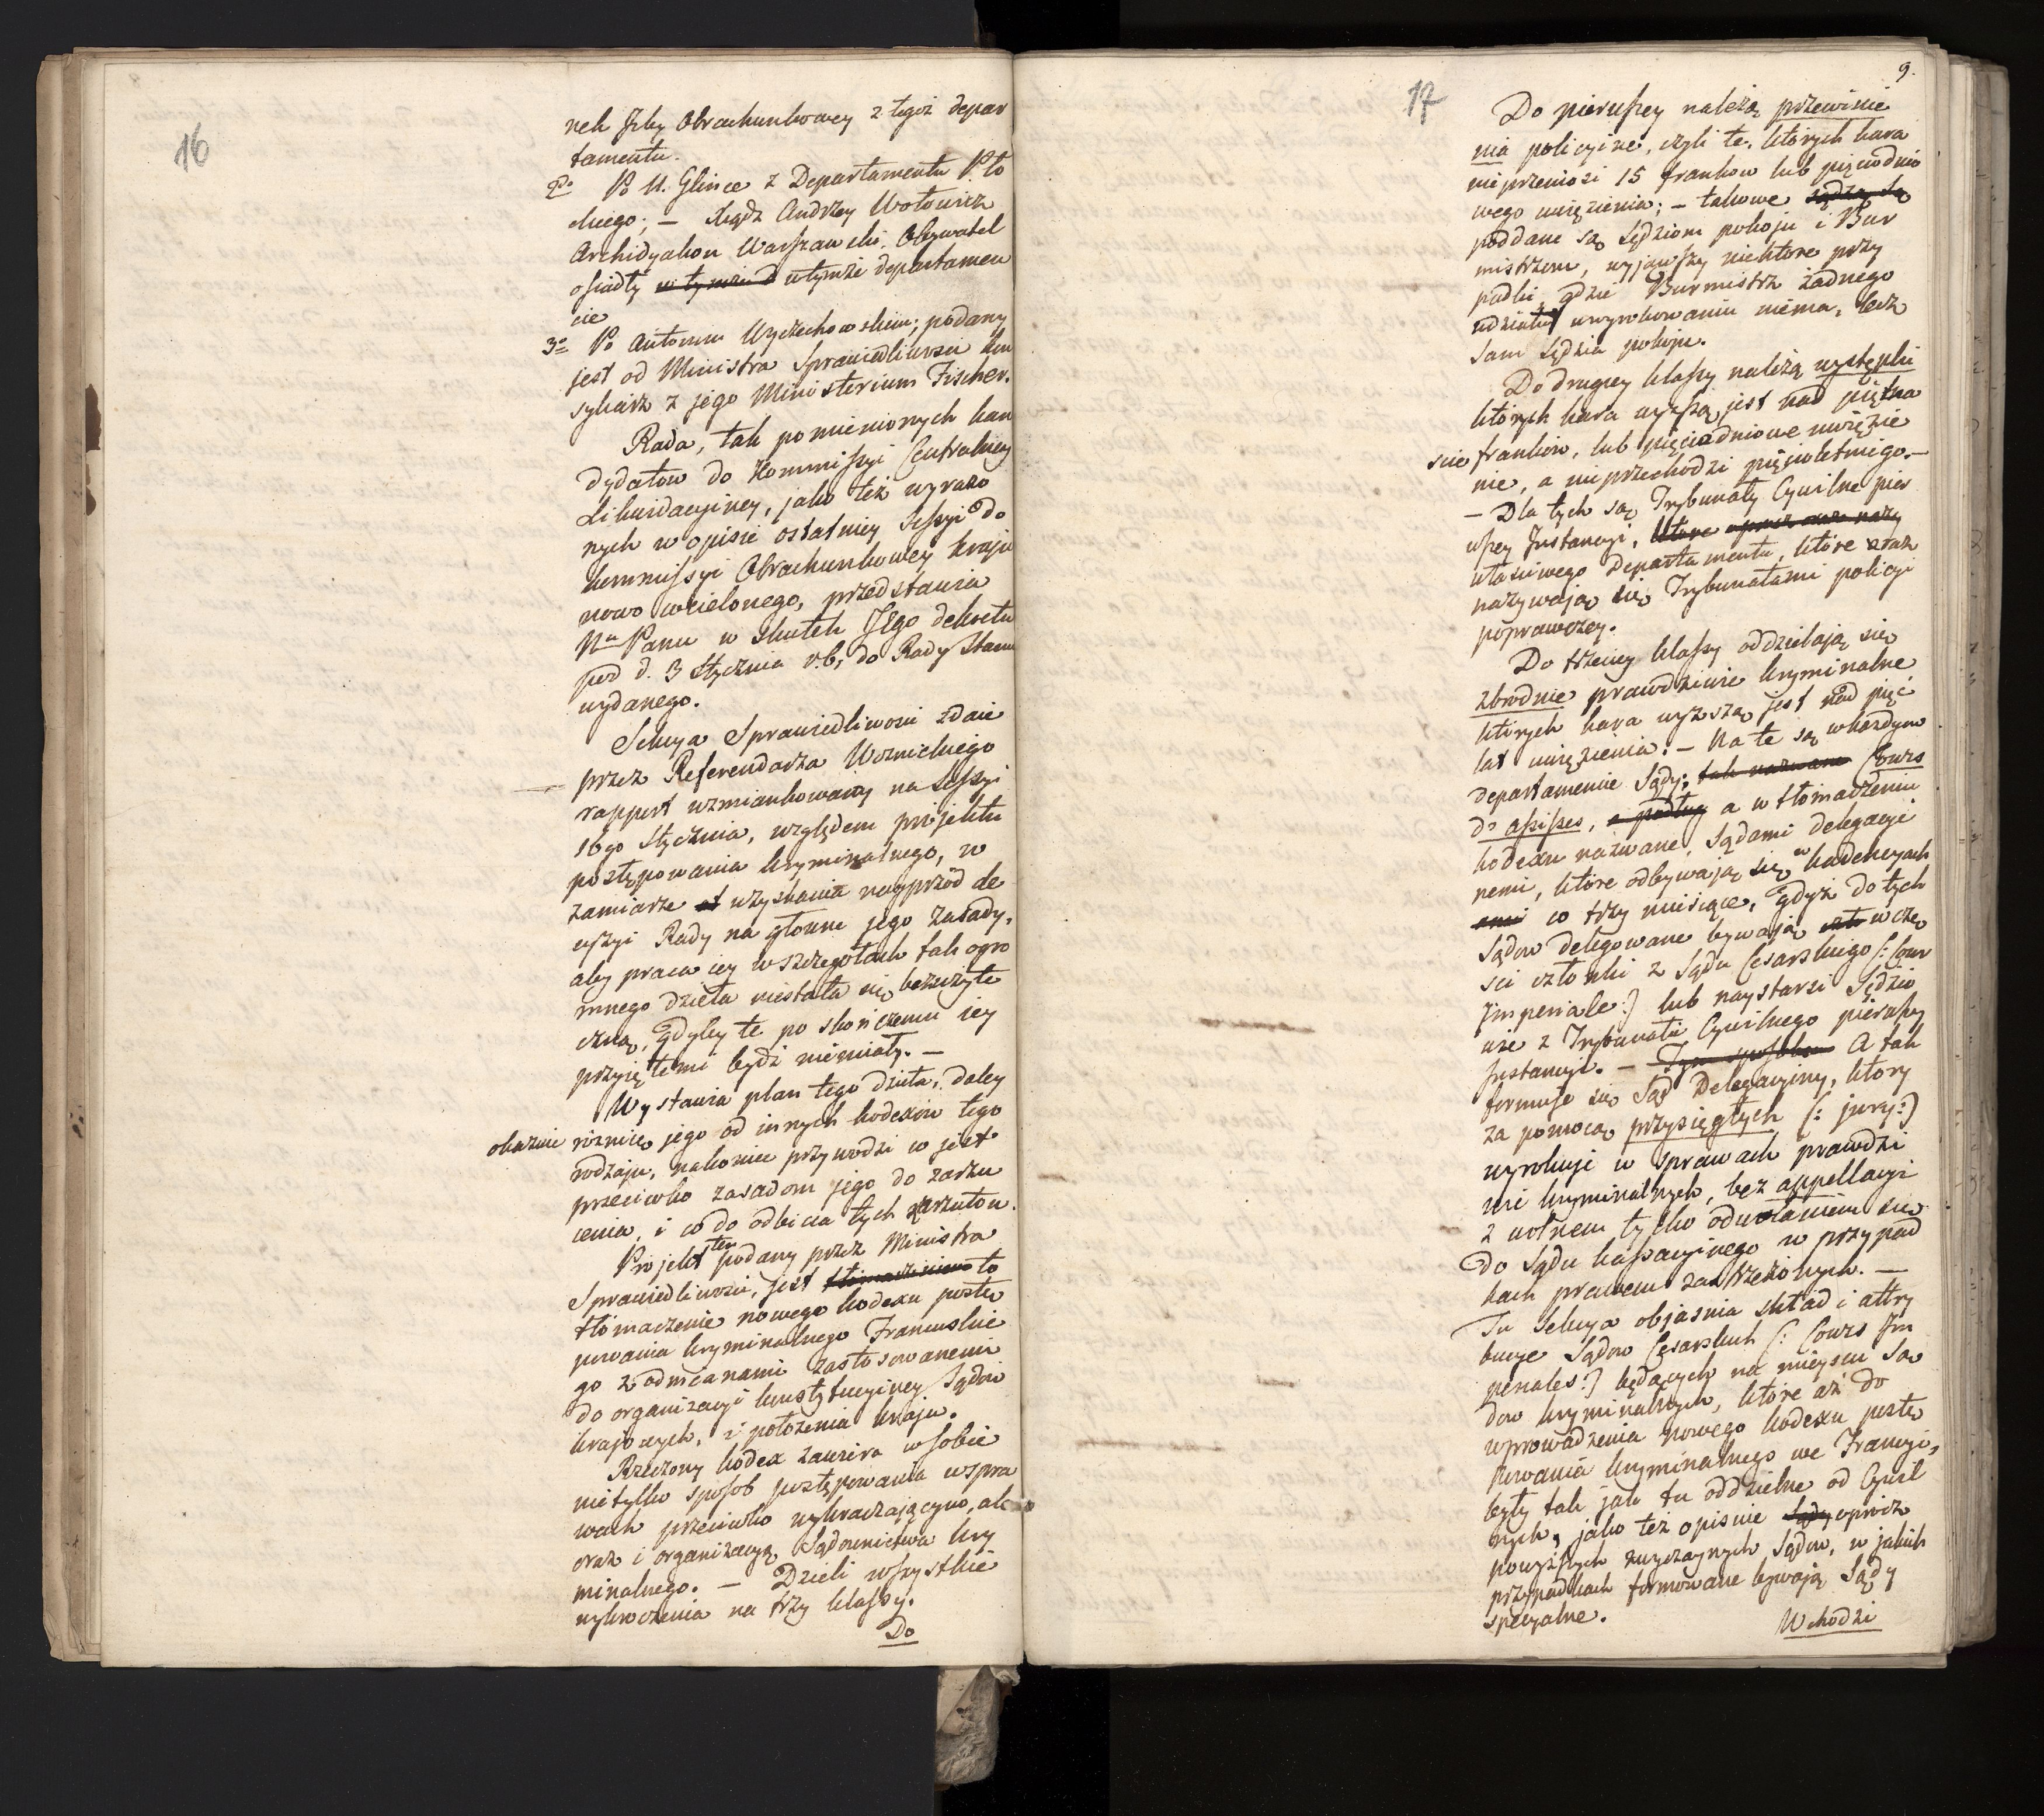 16
nek Izby Obrachunkowey z tegoż depar
tamentu.
2do Po U. Glince z Departamentu Pło
ckiego; – Xiądz Andrzey Wołowicz
Archidyakon Warszawski, Obywatel
osiadły w tymże d w tymże departamen
cie
3o Po Antonim Wyczechowskim; podany
jest od Ministra Sprawiedliwości Am
sylarz z jego Ministerium Fischer.
Rada, tak pomienionych kan
dydatow do Kommissyi Centralney
Likwidacyiney, jako też wyrażo
nych w opisie ostatniey Sessyi do
kommissyi Obrachunkowey kraju
nowo wcielonego, przedstawia
Nu Panu w skutek Jego dekretu
pod d. 3 Stycznia r.b. do Rady Stanu
wydanego.
Sekcya Sprawiedliwości zdaie
przez Referendarza Woznickiego
rapport wzmiankowany na Sessyi
16go Stycznia, względem projektu
postępowania kryminalnego, w
zamiarze uzyskania nayprzód de
cyzyi Rady na głowne jego zasady,
aby praca iey w szczegołach tak ogro
mnego dzieła niestała się bezużyte
czną, gdyby te po skończeniu iey
przyiętemi bydź niemiały. –
Wystawia plan tego dzieła, daley
okazuie różnicę jego od innych kodexów tego
rodzaju, nakoniec przywodzi co jest
przeciwko zasadom jego do zarzu
cenia, i co do odbicia tych zarzutow.
Projekt ten podany przez Ministra
Sprawiedliwości, jest tłómaczeniem to
tłómaczenie nowego kodexu postę
powania kryminalnego Francuskie
go z odmianami zastosowanemi
do organizacyi konstytucyiney Sądów
krajowych, i położenia kraju.
Rzeczony kodex zawiera w sobie
nietylko sposob postępowania w spra
wach przeciwko wykraczającym, ale
oraz i organizacyą Sądownictwa kry
minalnego. – Dzieli wszystkie
wykroczenia na trzy klassy.
Do
17
9.
Do pierwszey należą przewinie
nia policyine, czyli te, których kara
nieprzenosi 15 frankow lub pięciodnio
wego więzienia; – takowe sądzą są
poddane są Sędziom pokoju i Bur
mistrzom, wyjąwszy niektóre przy
padki, gdzie Burmistrz żadnego
udziału w wyrokowaniu niema, lecz
sam Sędzia pokoju.
Do drugiey klassy należą występki
których kara wyższą jest nad piętna
scie franków, lub pięciodniowe więzie
nie, a nieprzechodzi pięcioletniego. –
– Dla tych są Trybunały Cywilne pier
wszey Instancyi,
właściwego Departamentu, które zraz
nazywają się Trybunałami policyi
poprawczey.
Do trzeciey klassy oddzielają się
zbrodnie prawdziwie kryminalne,
których kara wyższą jest nad pięć
lat więzienia. – Na te są w każdym
departamencie Sądy; tak nazwane Cours
d'assises, a podług a w tłomaczeniu
kodexu nazwane, Sądami delegacyi
nemi, które odbywają się w kadencyach
co trzy miesiące, gdyż do tych
Sądow delegowane bywają w czę
sci członki z Sądu Cesarskiego (: Cour
Imperiale :) lub naystarsi Sędzio
wie z Trybunału Cywilnego pierwszy
Instancyi. – Tym sposobem A tak
formuje się Sąd Delegacyiny, który
za pomocą przysięgłych (: jury :)
wyrokuje w sprawach prawdzi
wie kryminalnych, bez appellacyi
z wolnem tylko odwołaniem się
do Sądu kassacyinego w przypad
kach prawem zastrzeżonych. –
Tu Sekcya objaśnia skład i attry
bucye Sądow Cesarskich (: Cours Im
periales :) będących na mieyscu Są
dow kryminalnych, które aż do
wprowadzenia nowego kodexu postę
powania kryminalnego we Francyi,
były tak jak tu oddzielne od Cywil
nych, jako też opisuie Sądy oprócz
powyższych zwyczaynych Sądow, w jakich
przypadkach formowane bywają Sądy
specyalne.
Wchodzi